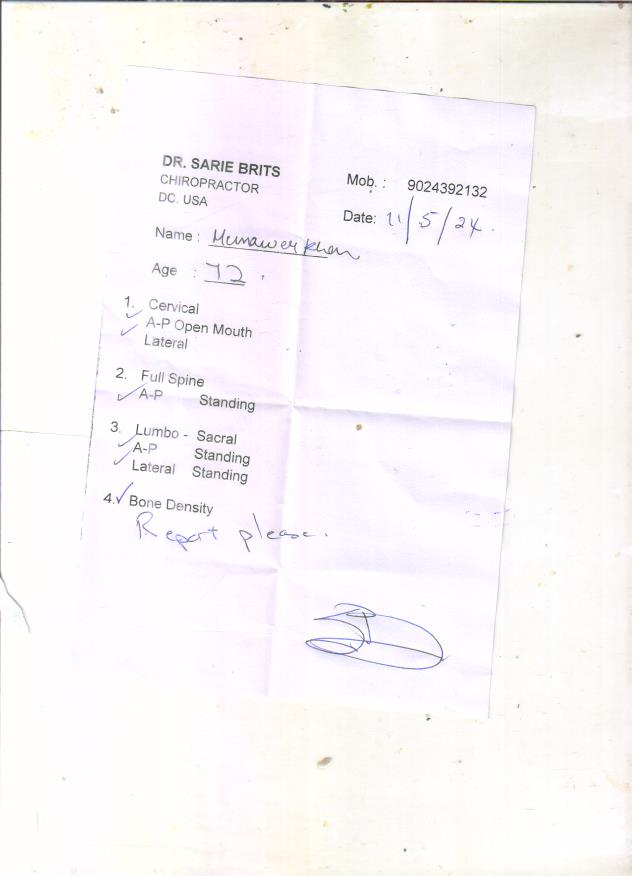 DR. SARIE BRITS
CHIROPRACTOR
DC. USA
Mob. : 9024392132
Date: 11/5/24.
Name : Munawer Khan
Age : 72.
1. Cervical
✓ A-P Open Mouth
✓ Lateral
2. Full Spine
✓ A-P Standing
3. Lumbo - Sacral
✓ A-P Standing
✓ Lateral Standing
4. ✓ Bone Density
Report please.